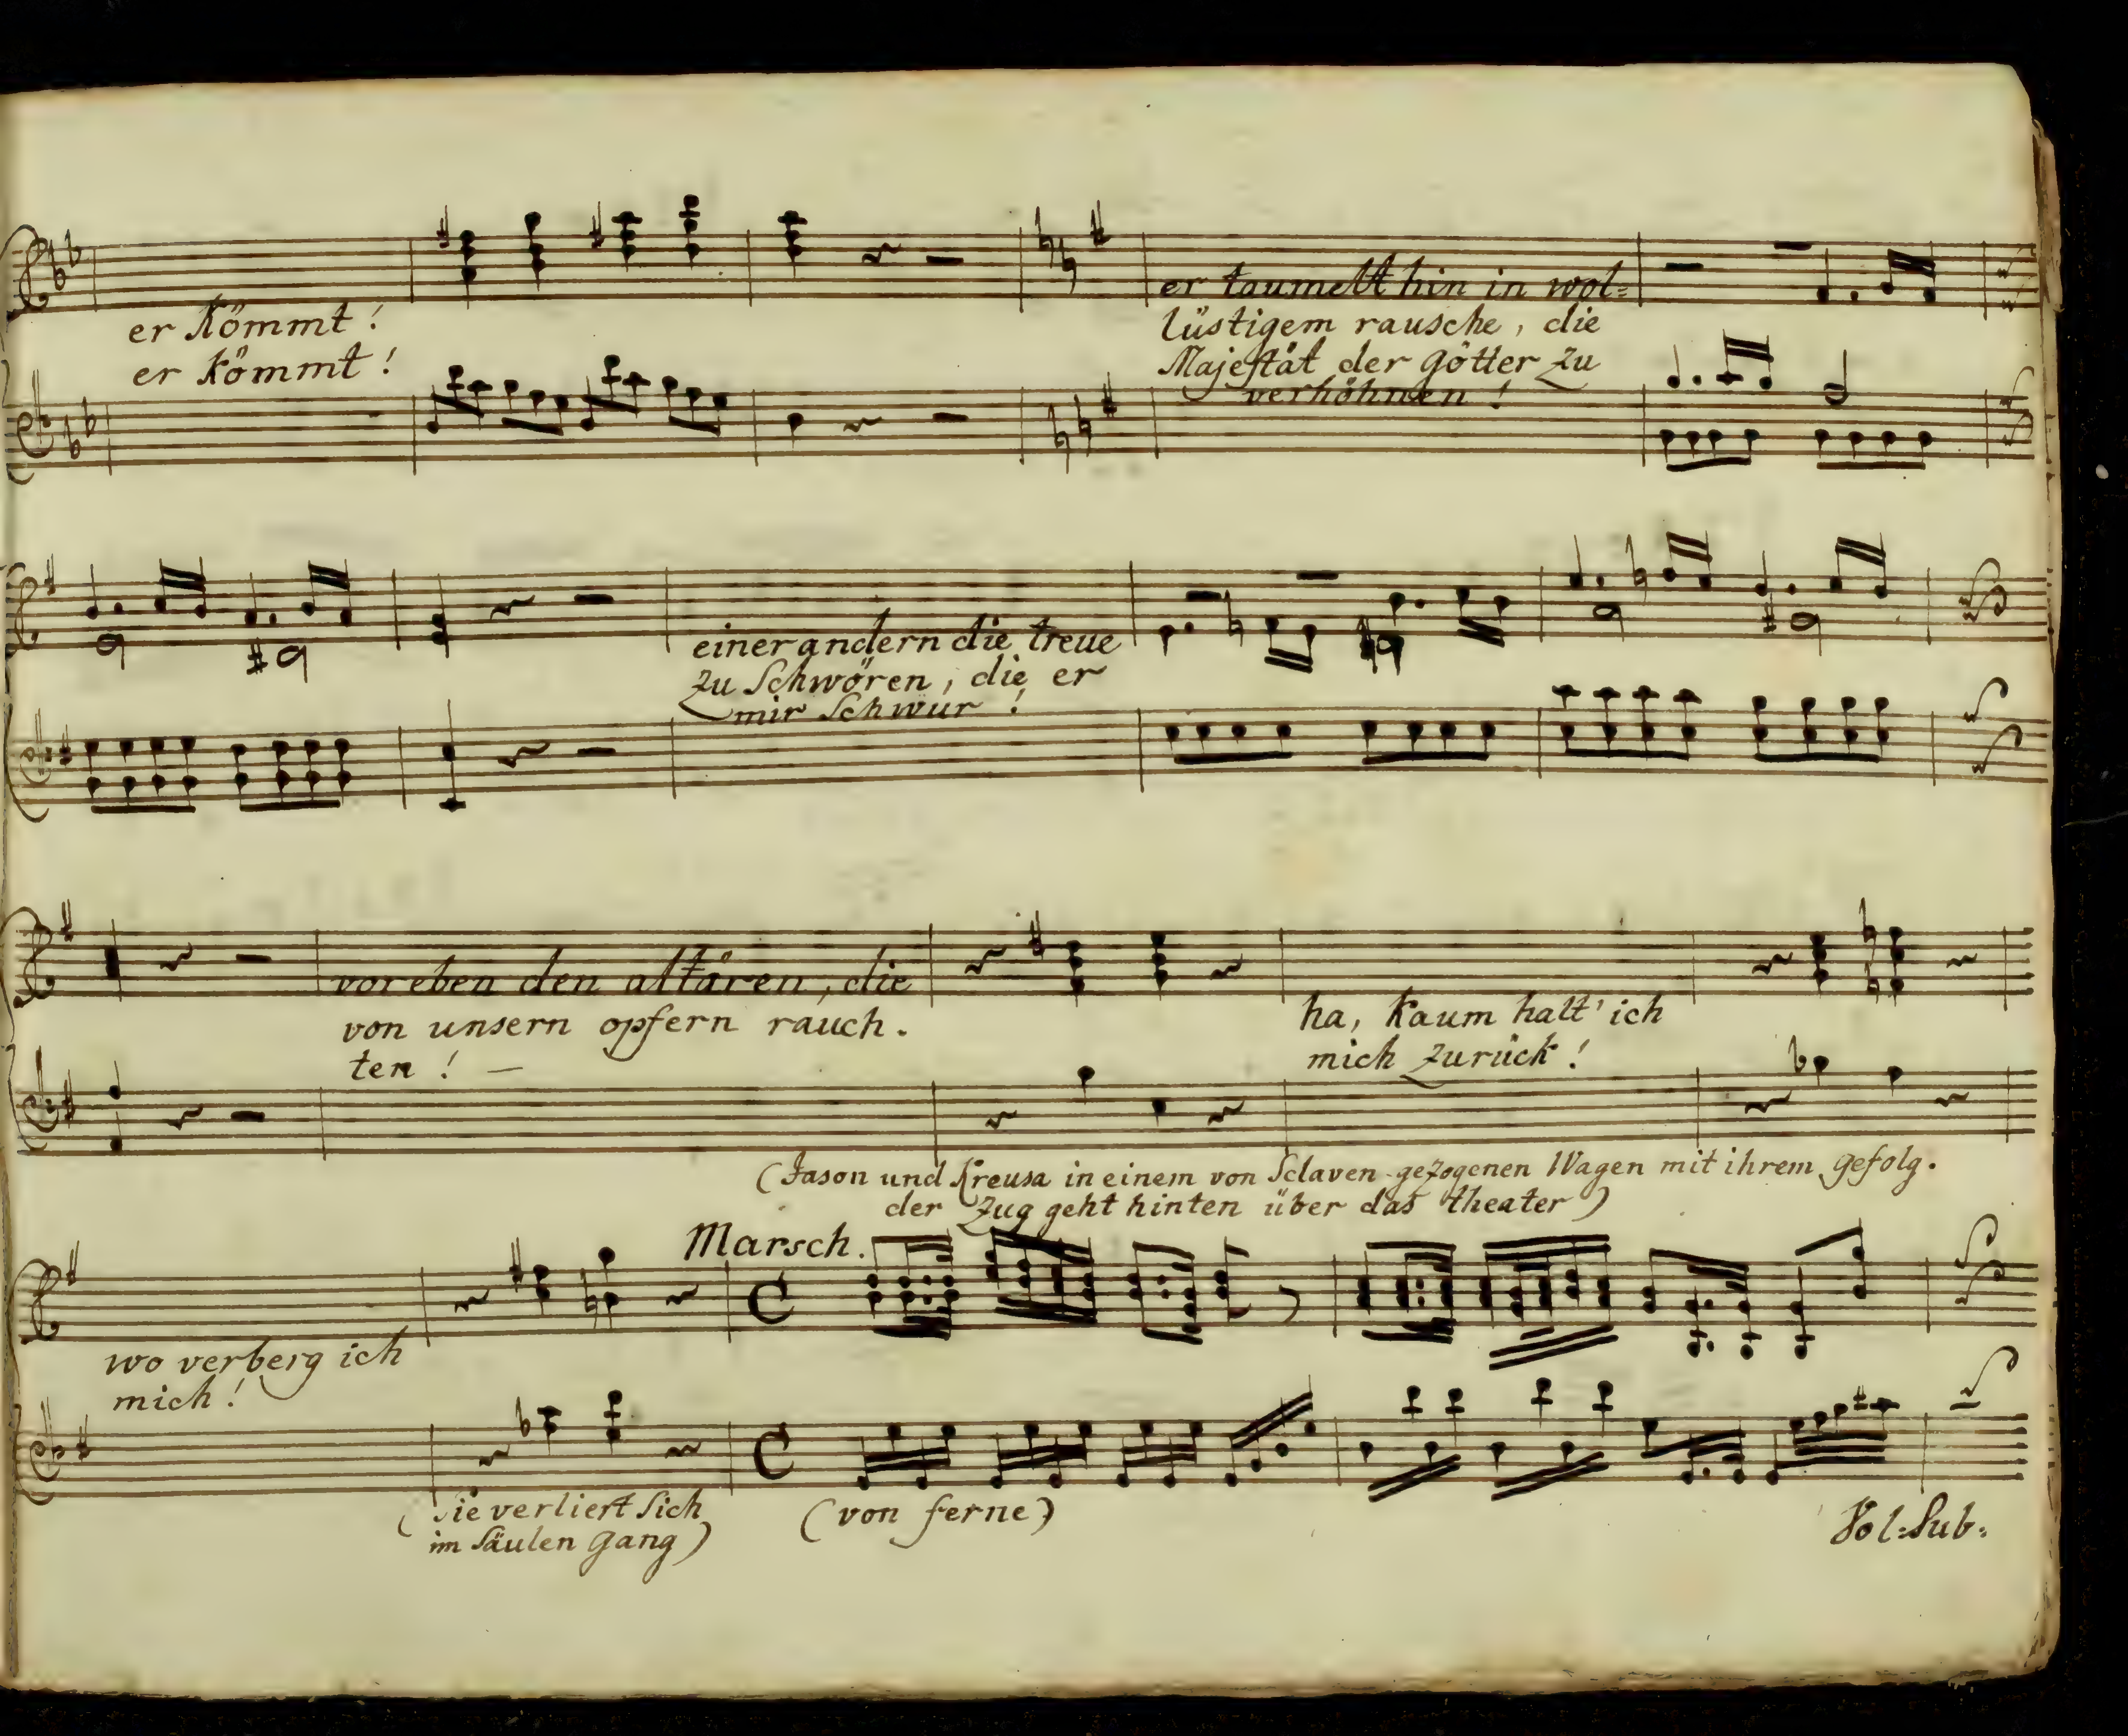 er kömmt!
er kömmt!
er taumelt hin in wol=
lüstigem rausche, die
Majestät der götter zu
verhöhnen!
einer andern die treue
zu Schwören, die er
mir Schwur!
vor eben den altären, die
von unsern opfern rauch.
ten! —
ha, kaum halt' ich
mich zurück!
(Jason und Kreusa in einem von Sclaven gezogenen Wagen mit ihrem gefolg.
der Zug geht hinten über das theater)
Marsch.
wo verberg ich
mich!
(Sie verliert Sich
im Säulen gang)
(von ferne)
Vol: Sub: